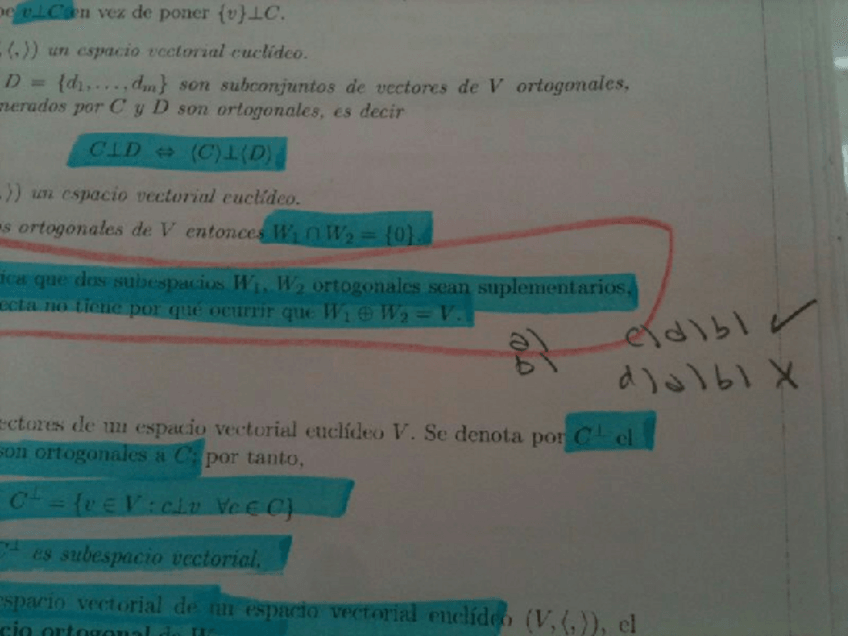 v⊥C en vez de poner {v}⊥C.
⟨,⟩) un espacio vectorial euclídeo.
D = {d₁,...,dₘ} son subconjuntos de vectores de V ortogonales,
nerados por C y D son ortogonales, es decir
C⊥D ⇔ ⟨C⟩⊥⟨D⟩
⟩) un espacio vectorial euclídeo.
os ortogonales de V entonces W₁ ∩ W₂ = {0}.
ica que dos subespacios W₁, W₂ ortogonales sean suplementarios,
ecta no tiene por qué ocurrir que W₁ ⊕ W₂ = V.
a) c) d) b) ✓
b) d) a) b) X
ectores de un espacio vectorial euclídeo V. Se denota por C^⊥ el
son ortogonales a C; por tanto,
C^⊥ = {v ∈ V : c⊥v ∀c ∈ C}
C^⊥ es subespacio vectorial.
espacio vectorial de un espacio vectorial euclídeo (V,⟨,⟩), el
cio ortogonal de W